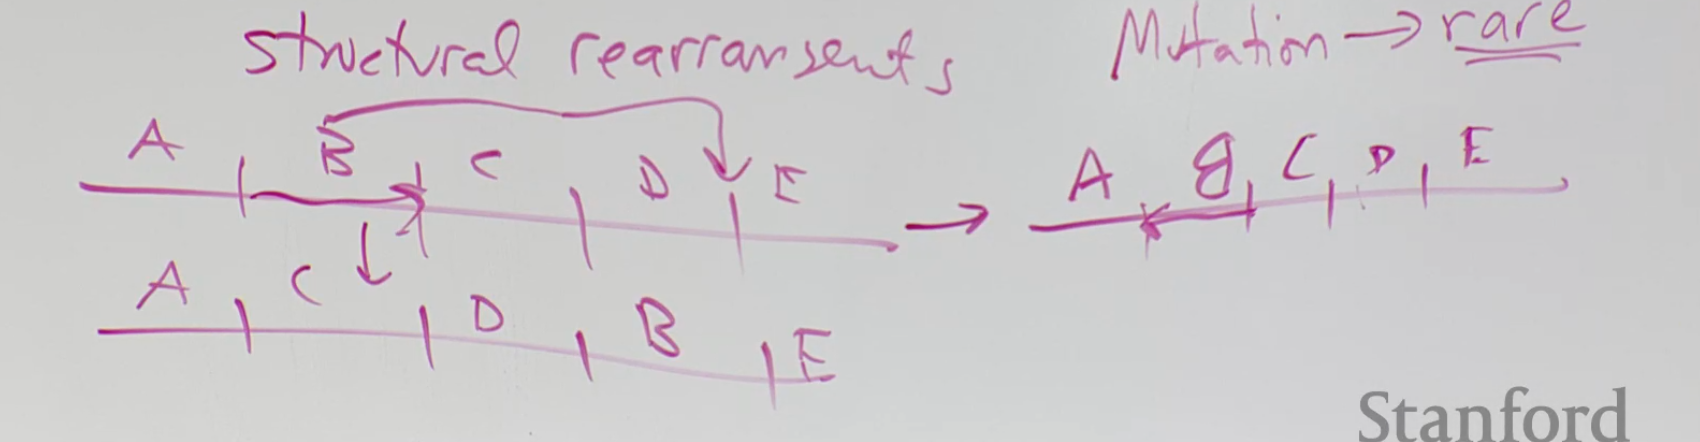 structural rearransents
Mutation → rare
A B C D E → A B C D E
A C D B E
Stanford